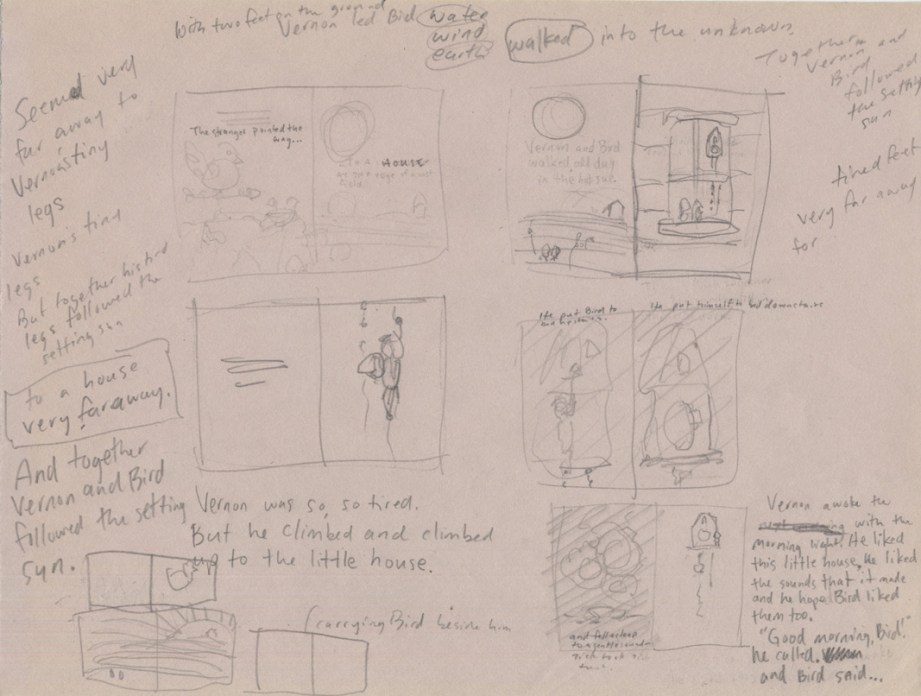 With two feet on the ground
Vernon led Bird
water
wind
earth
walked into the unknown.
Together
Vernon and
Bird
followed
the setting
sun
tired feet
very far away
for
Seemed very
far away to
Vernon's tiny
legs
Vernon's tiny
legs
But together his bird
legs followed the
setting sun
to a house
very far away.
And together
Vernon and Bird
followed the setting
sun.
The stranger pointed the
way...
to a HOUSE
Vernon and Bird
walked all day
in the hot sun.
Vernon was so, so tired.
But he climbed and climbed
up to the little house.
(carrying Bird beside him
He put Bird to
He put himself to bed downstairs
and fell asleep
Vernon awoke the
with the
morning light. He liked
this little house. He liked
the sounds that it made
and he hoped Bird liked
them too.
"Good morning, Bird!"
he called.
and Bird said...